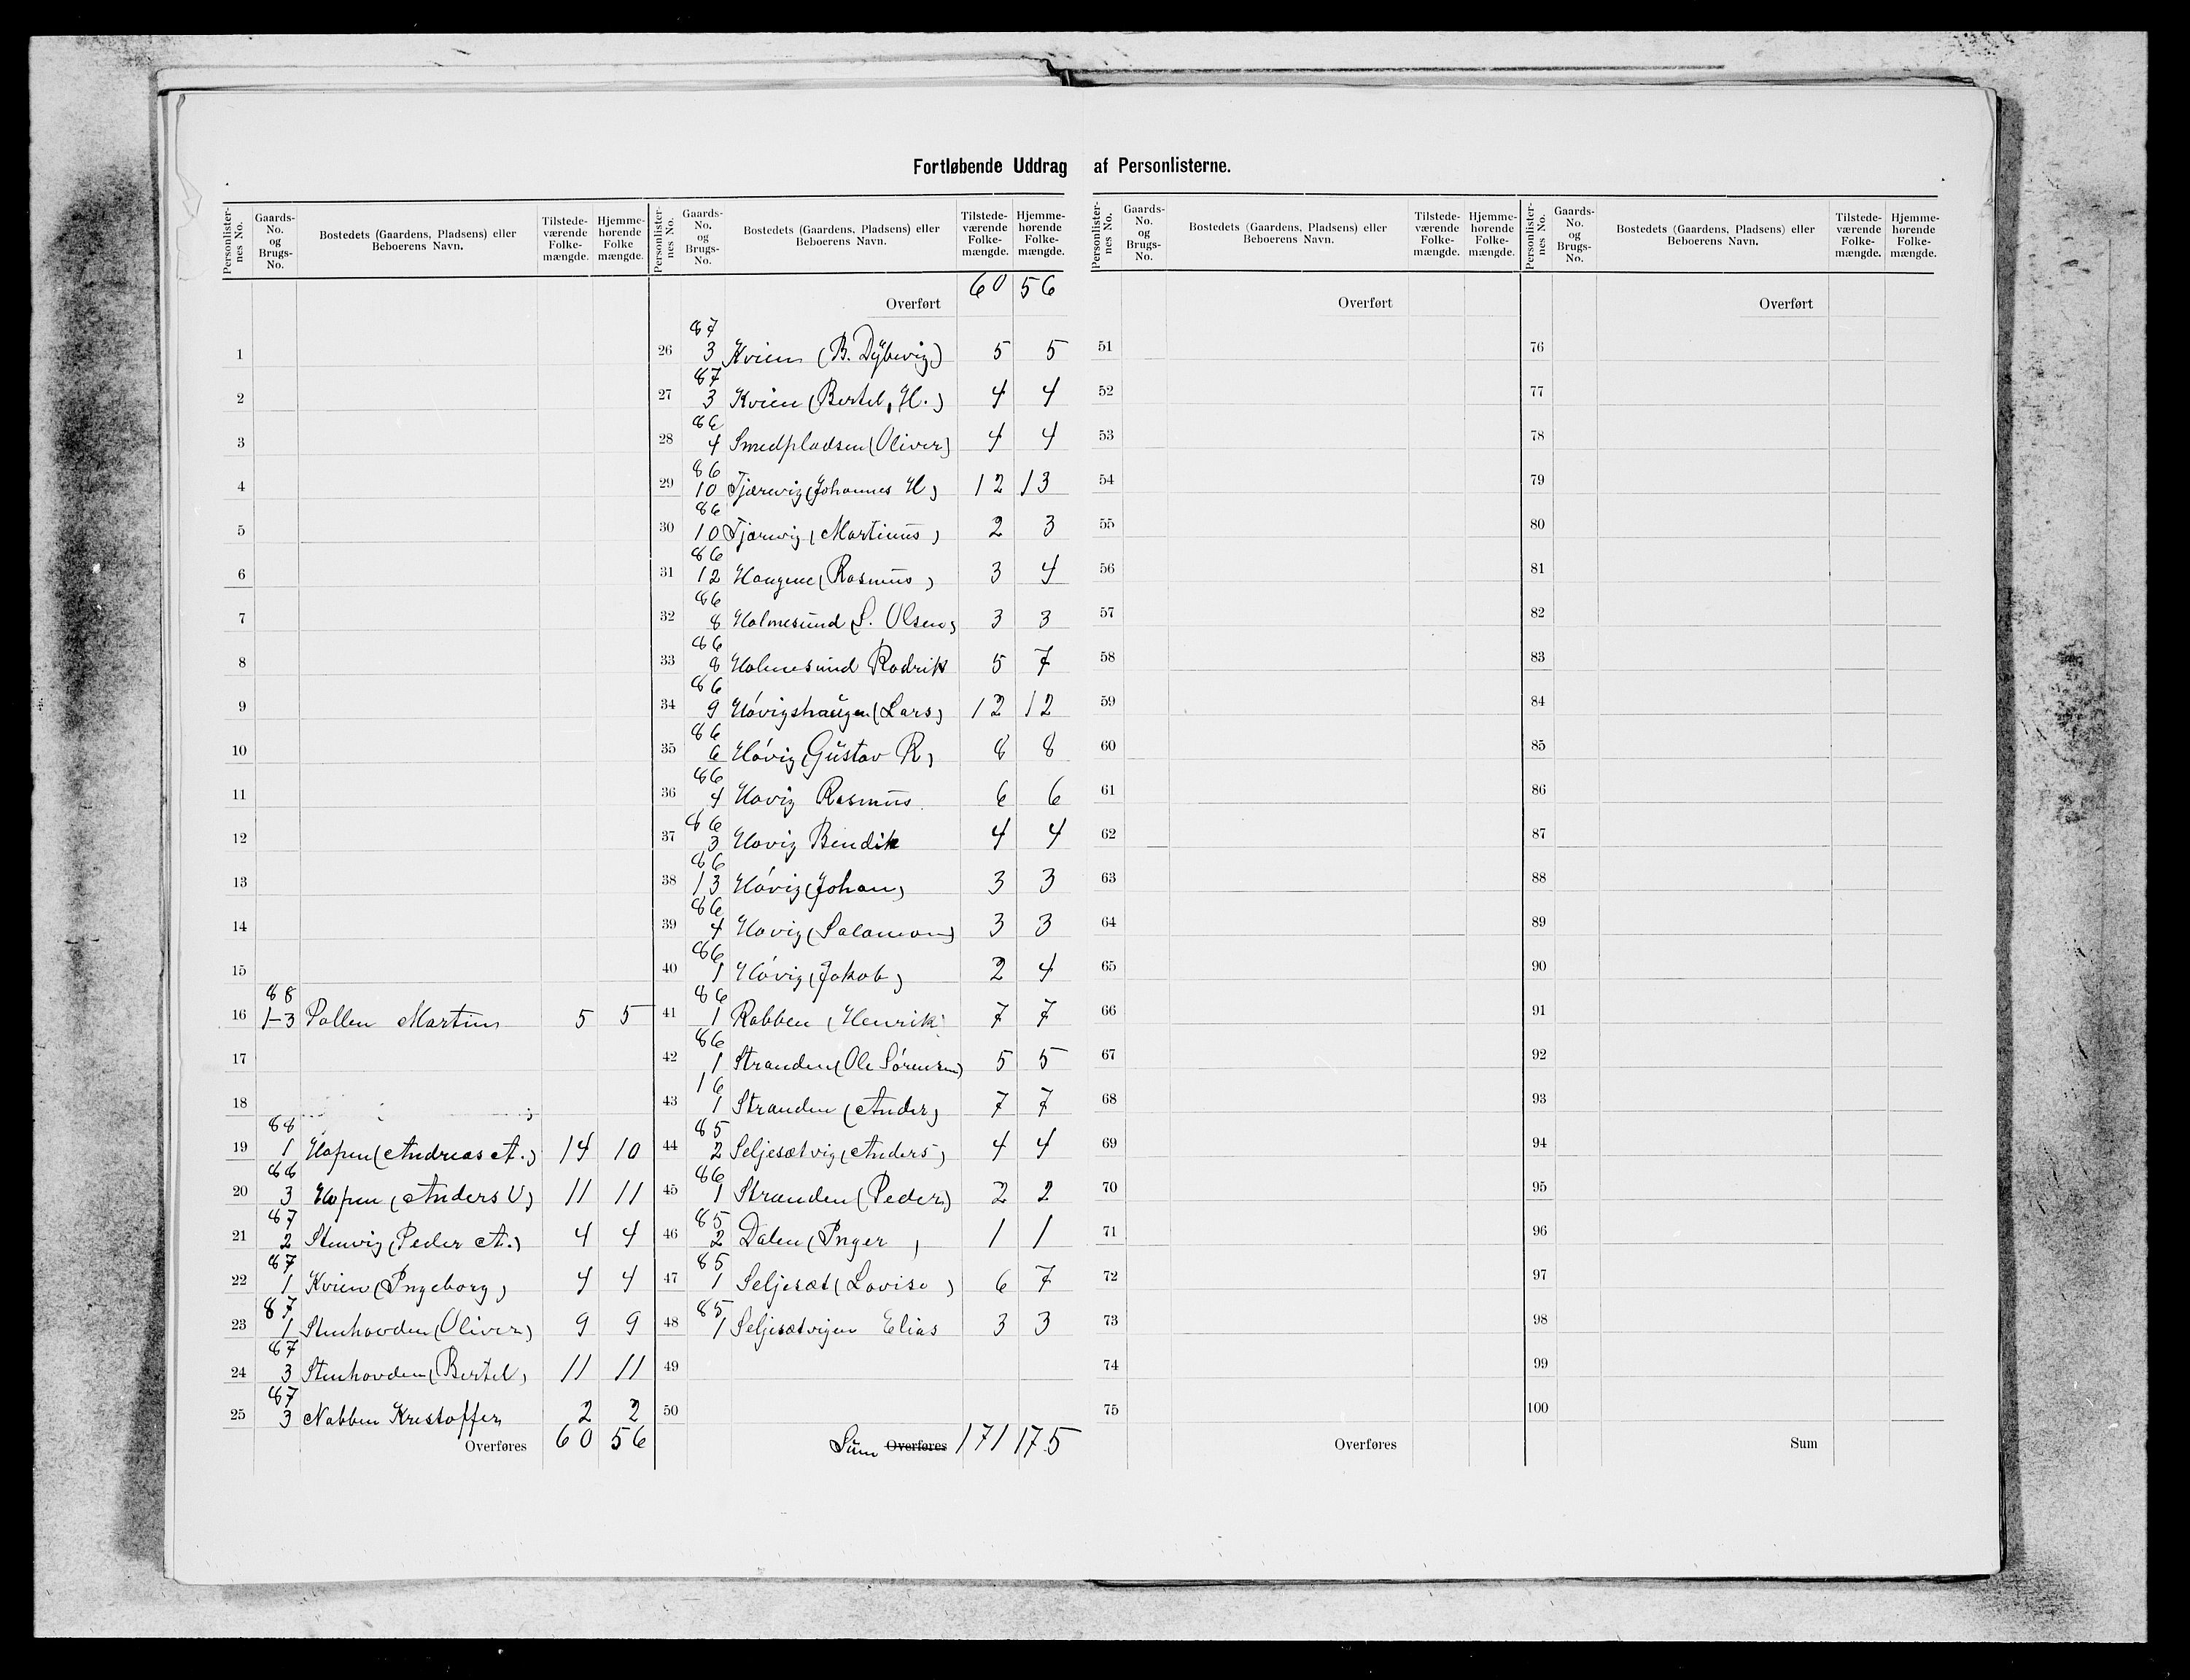 Fortløbende Uddrag af Personlisterne.
Personlister-nes No. Gaards-No. og Brugs-No. Bostedets (Gaardens, Pladsens) eller Beboerens Navn. Tilstede-værende Folke-mængde. Hjemme-hørende Folke mængde.
1
2
3
4
5
6
7
8
9
10
11
12
13
14
15
16 88 1-3 Pollen Martin 5 5
17
18
19 88 1 Hopen (Andreas A.) 14 10
20 88 3 Hopen (Anders O) 11 11
21 87 2 Stenvig (Peder A.) 4 4
22 87 1 Kvien (Ingeborg) 4 4
23 87 1 Stenhovden (Oliver) 9 9
24 87 3 Stenhovden (Bertel) 11 11
25 87 3 Nabben Kristoffer 2 2
Overføres 60 56
Personlister-nes No. Gaards-No. og Brugs-No. Bostedets (Gaardens, Pladsens) eller Beboerens Navn. Tilstede-værende Folke-mængde. Hjemme-hørende Folke-mængde.
Overført 60 56
26 87 3 Kvien (B. Dÿbevig) 5 5
27 87 3 Kvien (Bertel, H.) 4 4
28 86 4 Smedpladsen (Oliver) 4 4
29 86 10 Tjærevig (Johannes H) 12 13
30 86 10 Tjærevig (Martinus) 2 3
31 86 12 Haugene (Rasmus) 3 4
32 86 8 Holmesund S. Olsen) 3 3
33 86 8 Holmesund Rodrik 5 7
34 86 9 Hóvigshaugen (Lars) 12 12
35 86 6 Hóvig (Gustav R) 8 8
36 86 4 Hovig Rasmus 6 6
37 86 3 Hovig Bendik 4 4
38 86 13 Hóvig (Johan) 3 3
39 86 4 Hovig (Salamon) 3 3
40 86 1 Hóvig (Jakob) 2 4
41 86 1 Rabben (Henrik) 7 7
42 86 1 Stranden (Ole Sórensen) 5 5
43 16 1 Stranden (Anders) 7 7
44 85 2 Seljesætvig (Anders) 4 4
45 86 1 Stranden (Peder) 2 2
46 85 2 Dalen (Inger) 1 1
47 85 1 Seljesæt (Lovise) 6 7
48 85 1 Seljesætvigen Elias 3 3
49
50
Sum Overføres 171 175
Personlister-nes No. Gaards-No. og Brugs-No. Bostedets (Gaardens, Pladsens) eller Beboerens Navn. Tilstede-værende Folke-mængde. Hjemme-hørende Folke-mængde.
Overført
51
52
53
54
55
56
57
58
59
60
61
62
63
64
65
66
67
68
69
70
71
72
73
74
75
Overføres
Personlister-nes No. Gaards-No. og Brugs-No. Bostedets (Gaardens, Pladsens) eller Beboerens Navn. Tilstede-værende Folke-mængde. Hjemme-hørende Folke-mængde.
Overført
76
77
78
79
80
81
82
83
84
85
86
87
88
89
90
91
92
93
94
95
96
97
98
99
100
Sum